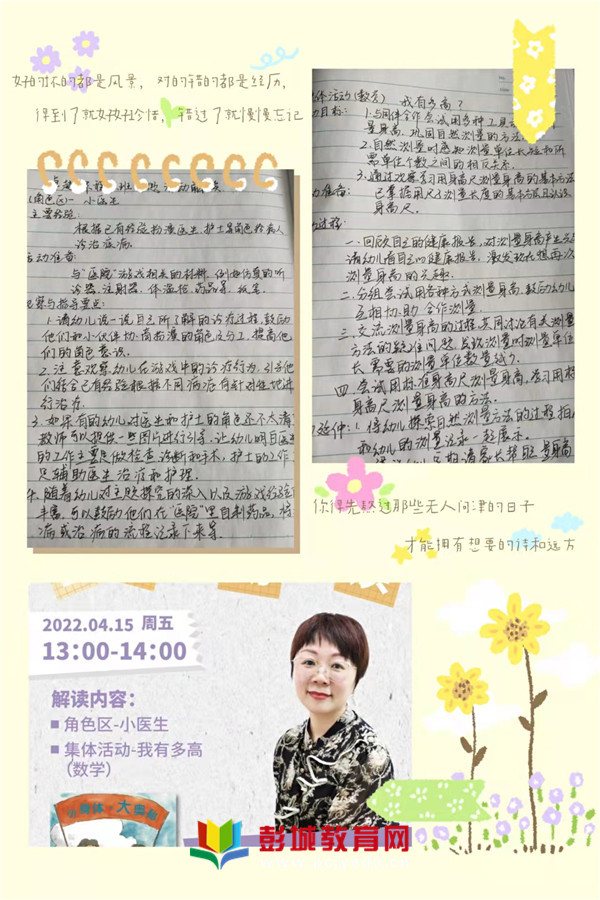 好的坏的都是风景，对的错的都是经历，
得到了就好好珍惜，错过了就慢慢忘记
角色区1- 小医生
主要经验：
根据已有经验扮演医生、护士等角色给病人
诊治疾病。
活动准备：
与"医院"游戏相关的材料，例如仿真的听
诊器、注射器、体温枪、药品等、纸笔。
观察与指导要点：
1.请幼儿说一说自己所了解的诊疗过程，鼓励
他们和小伙伴协商扮演的角色及分工，提高他
们的角色意识。
2.注意观察幼儿在游戏中的诊疗行为，引导他
们结合已有经验根据不同病症有针对性地进
行治疗。
3.如果有的幼儿对医生和护士的角色还不太清
教师可以提供一些图片进行引导，让幼儿明白医生
的工作主要是做检查、诊断和手术，护士的工作
是辅助医生治疗和护理。
4.随着幼儿对主题探究的深入以及游戏经验
丰富，可以鼓励他们在"医院"里自制药品，将
病或治病的流程记录下来等.
体活动(数学) 我有多高？
动目标：1.与同伴合作尝试用多种工具
量身高，巩固自然测量的方法
2.自然测量时感知测量单位长短和所
需单位个数之间的相反关系。
3.通过观察学习用身高尺测量身高的基本方法
动准备：已掌握用尺子测量长度的基本方法且认识
身高尺。
动过程：
一.回顾自己的健康报告，对测量身高产生兴
请幼儿看自己的健康报告，激发现在想再次
测量身高的兴趣.
二.分组尝试用各种方式测量身高，鼓励幼儿
互相协助合作测量.
三.交流测量身高的过程，共同讨论有关测量
方法的疑难问题，发现测量时测量单位
长，需要的测量单位数量越少。
四.尝试用标准身高尺测量身高，学习用标
身高尺测量身高的方法.
延伸：1.将幼儿探索自然测量方法的过程拍
和幼儿的测量记录一起展示。
你得先熬过那些无人问津的日子
才能拥有想要的诗和远方
2022.04.15 周五
13:00-14:00
解读内容：
角色区-小医生
集体活动-我有多高
（数学）
彭城教育网